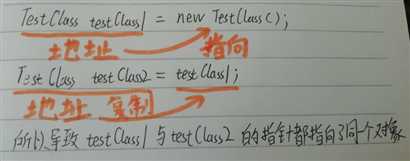 TestClass testClass1 = new TestClass();
地址 指向
Test Class testClass2 = testClass1;
地址 复制
所以导致 testClass1 与 testClass2 的指针都指向了同一个对象